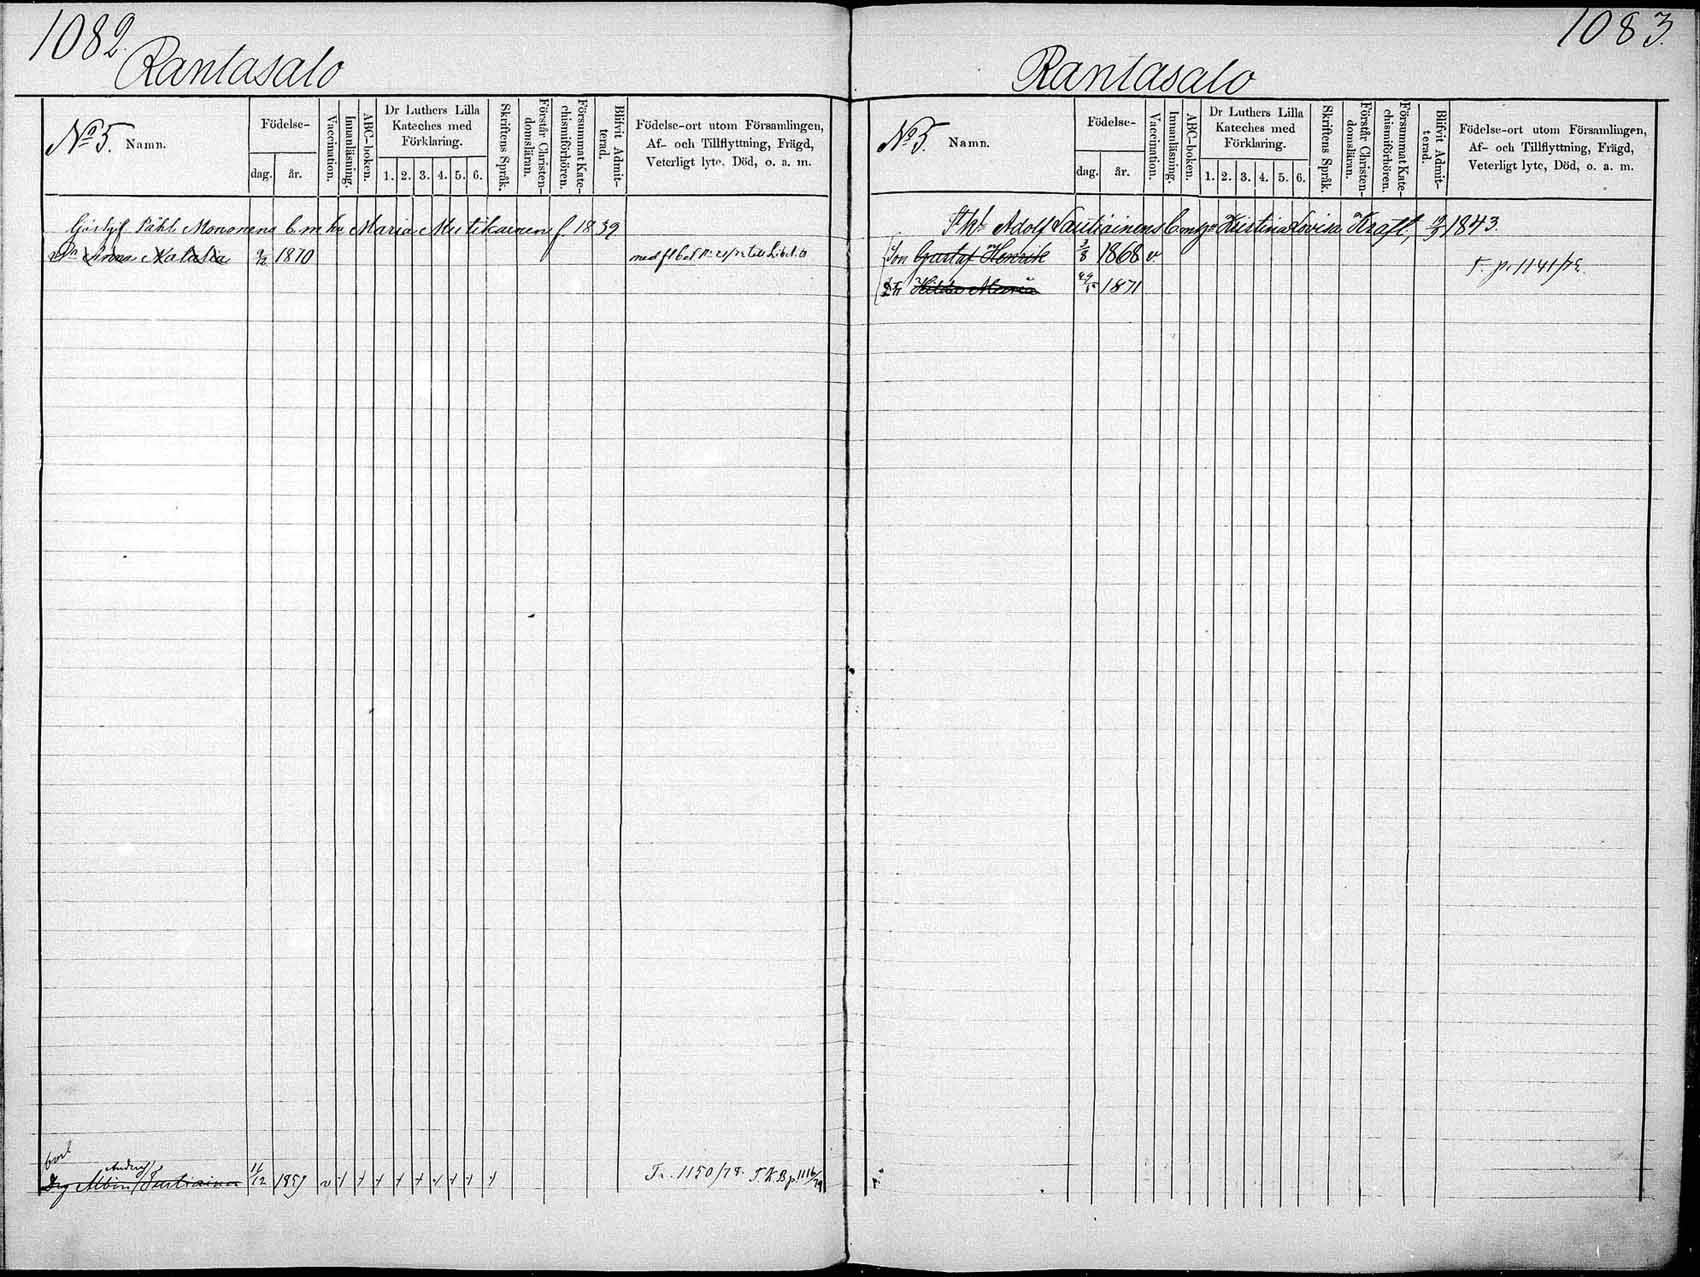 1082.
Rantasalo
No 5. Namn.
Födelse-
dag. år.
Vaccination.
Innanläsning.
ABC-boken.
Dr Luthers Lilla
Kateches med
Förklaring.
1. 2. 3. 4. 5. 6.
Skriftens Språk.
Förstår Christen-
domsläran.
Försummat Kate-
chismiförhören.
Blifvit Admit-
terad.
Födelse-ort utom Församlingen,
Af- och Tillflyttning, Frägd,
Veterligt lyte, Död, o. a. m.
Påhl Mononens Maria Mutikainen f. 1839
Dr Anna Natalia 1870 med
bort
Andrej
Drg Albin Tertiainen 11/12 1859 v + + + + + + + + +
Tr. 1150/78. T.K.B p. 1116/79
1083.
Rantasalo
No 5. Namn.
Födelse-
dag. år.
Vaccination.
Innanläsning.
ABC-boken.
Dr Luthers Lilla
Kateches med
Förklaring.
1. 2. 3. 4. 5. 6.
Skriftens Språk.
Förstår Christen-
domsläran.
Försummat Kate-
chismiförhören.
Blifvit Admit-
terad.
Födelse-ort utom Församlingen,
Af- och Tillflyttning, Frägd,
Veterligt lyte, Död, o. a. m.
Adolf Lovisa Kraft, 1843.
Son Gustaf Henrik 3/8 1868 v
Dr Hilda Maria 1871